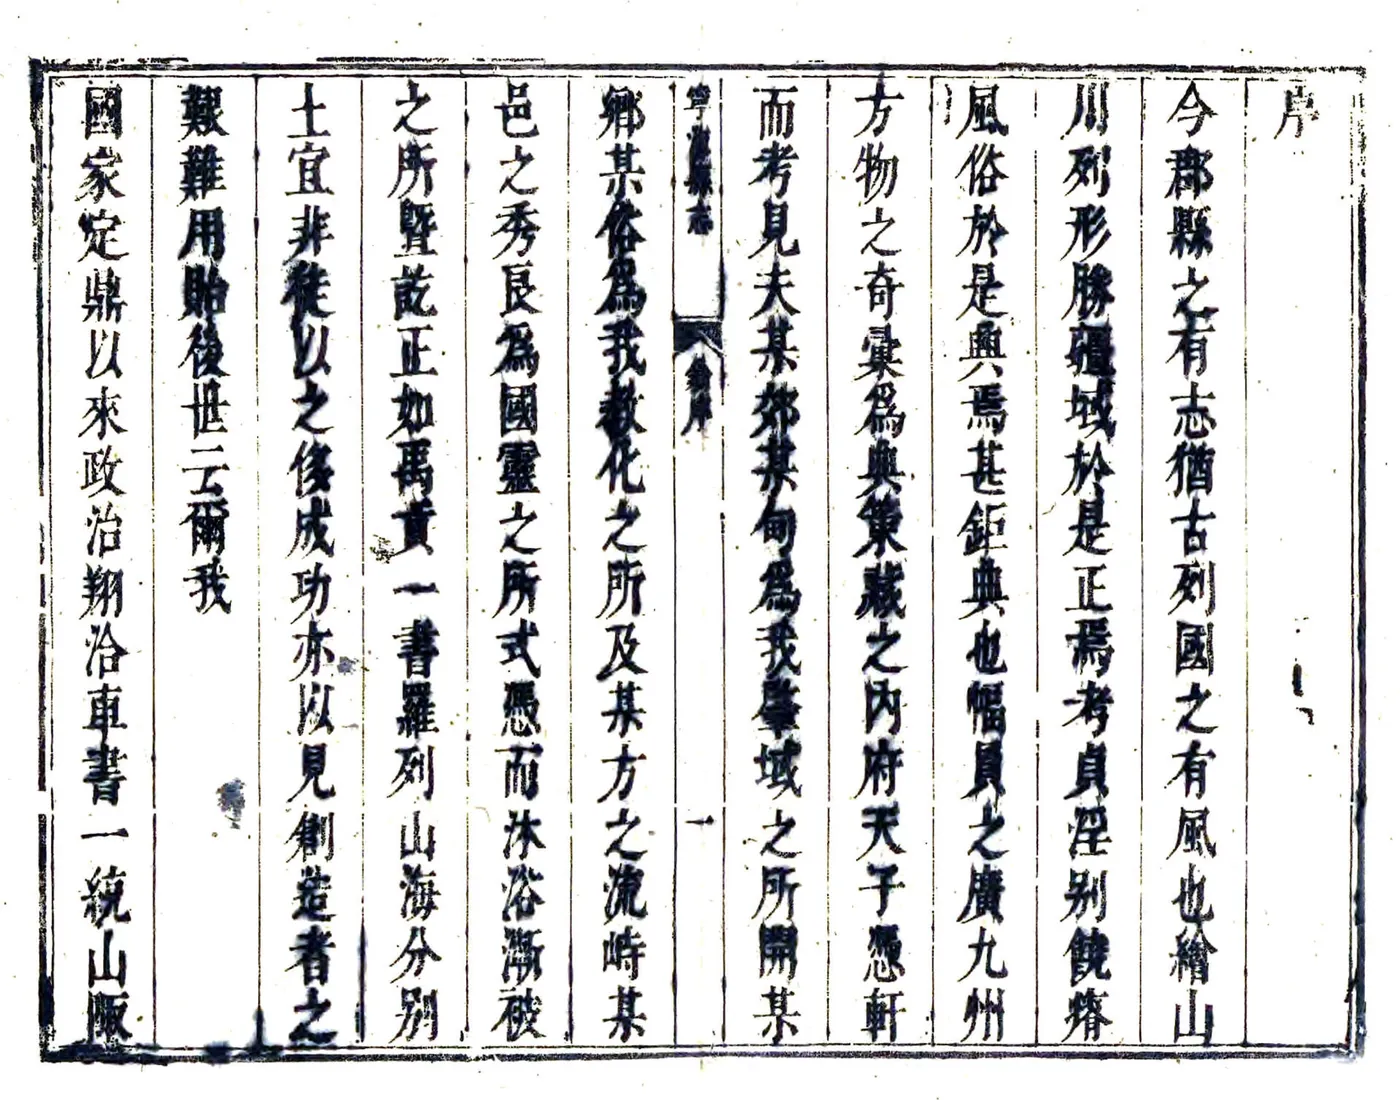 序
今郡縣之有志猶古列國之有風也繪山
川列形勝疆域於是正焉考貞淫别饒瘠
風俗於是典焉甚鉅典也幅員之廣九州
方物之奇彙為典策藏之內府天子憑軒
而考見夫某郊某甸為我肇域之所開某
縣志
序
一
鄉某俗為我教化之所及某方之流峙某
邑之秀良為國靈之所式憑而沐浴漸被
之所曁訖正如禹貢一書羅列山海分别
土宜非徒以之侈成功亦以見創造者之
艱難用貽後世云爾我
國家定鼎以來政治翔洽車書一統山陬